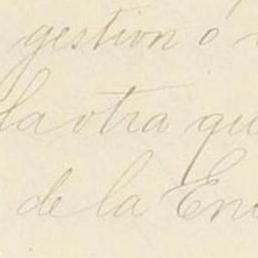 gestion ó
la otra
de la